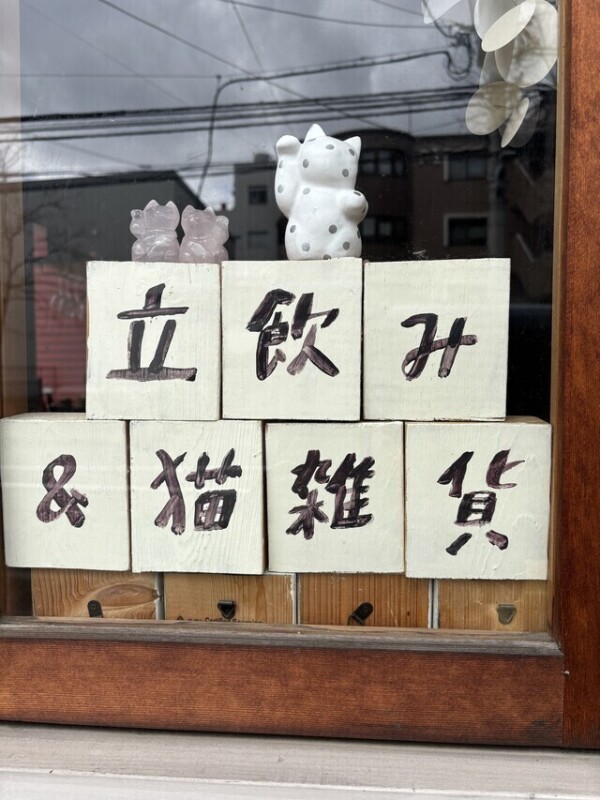 立飲み
&猫雑貨